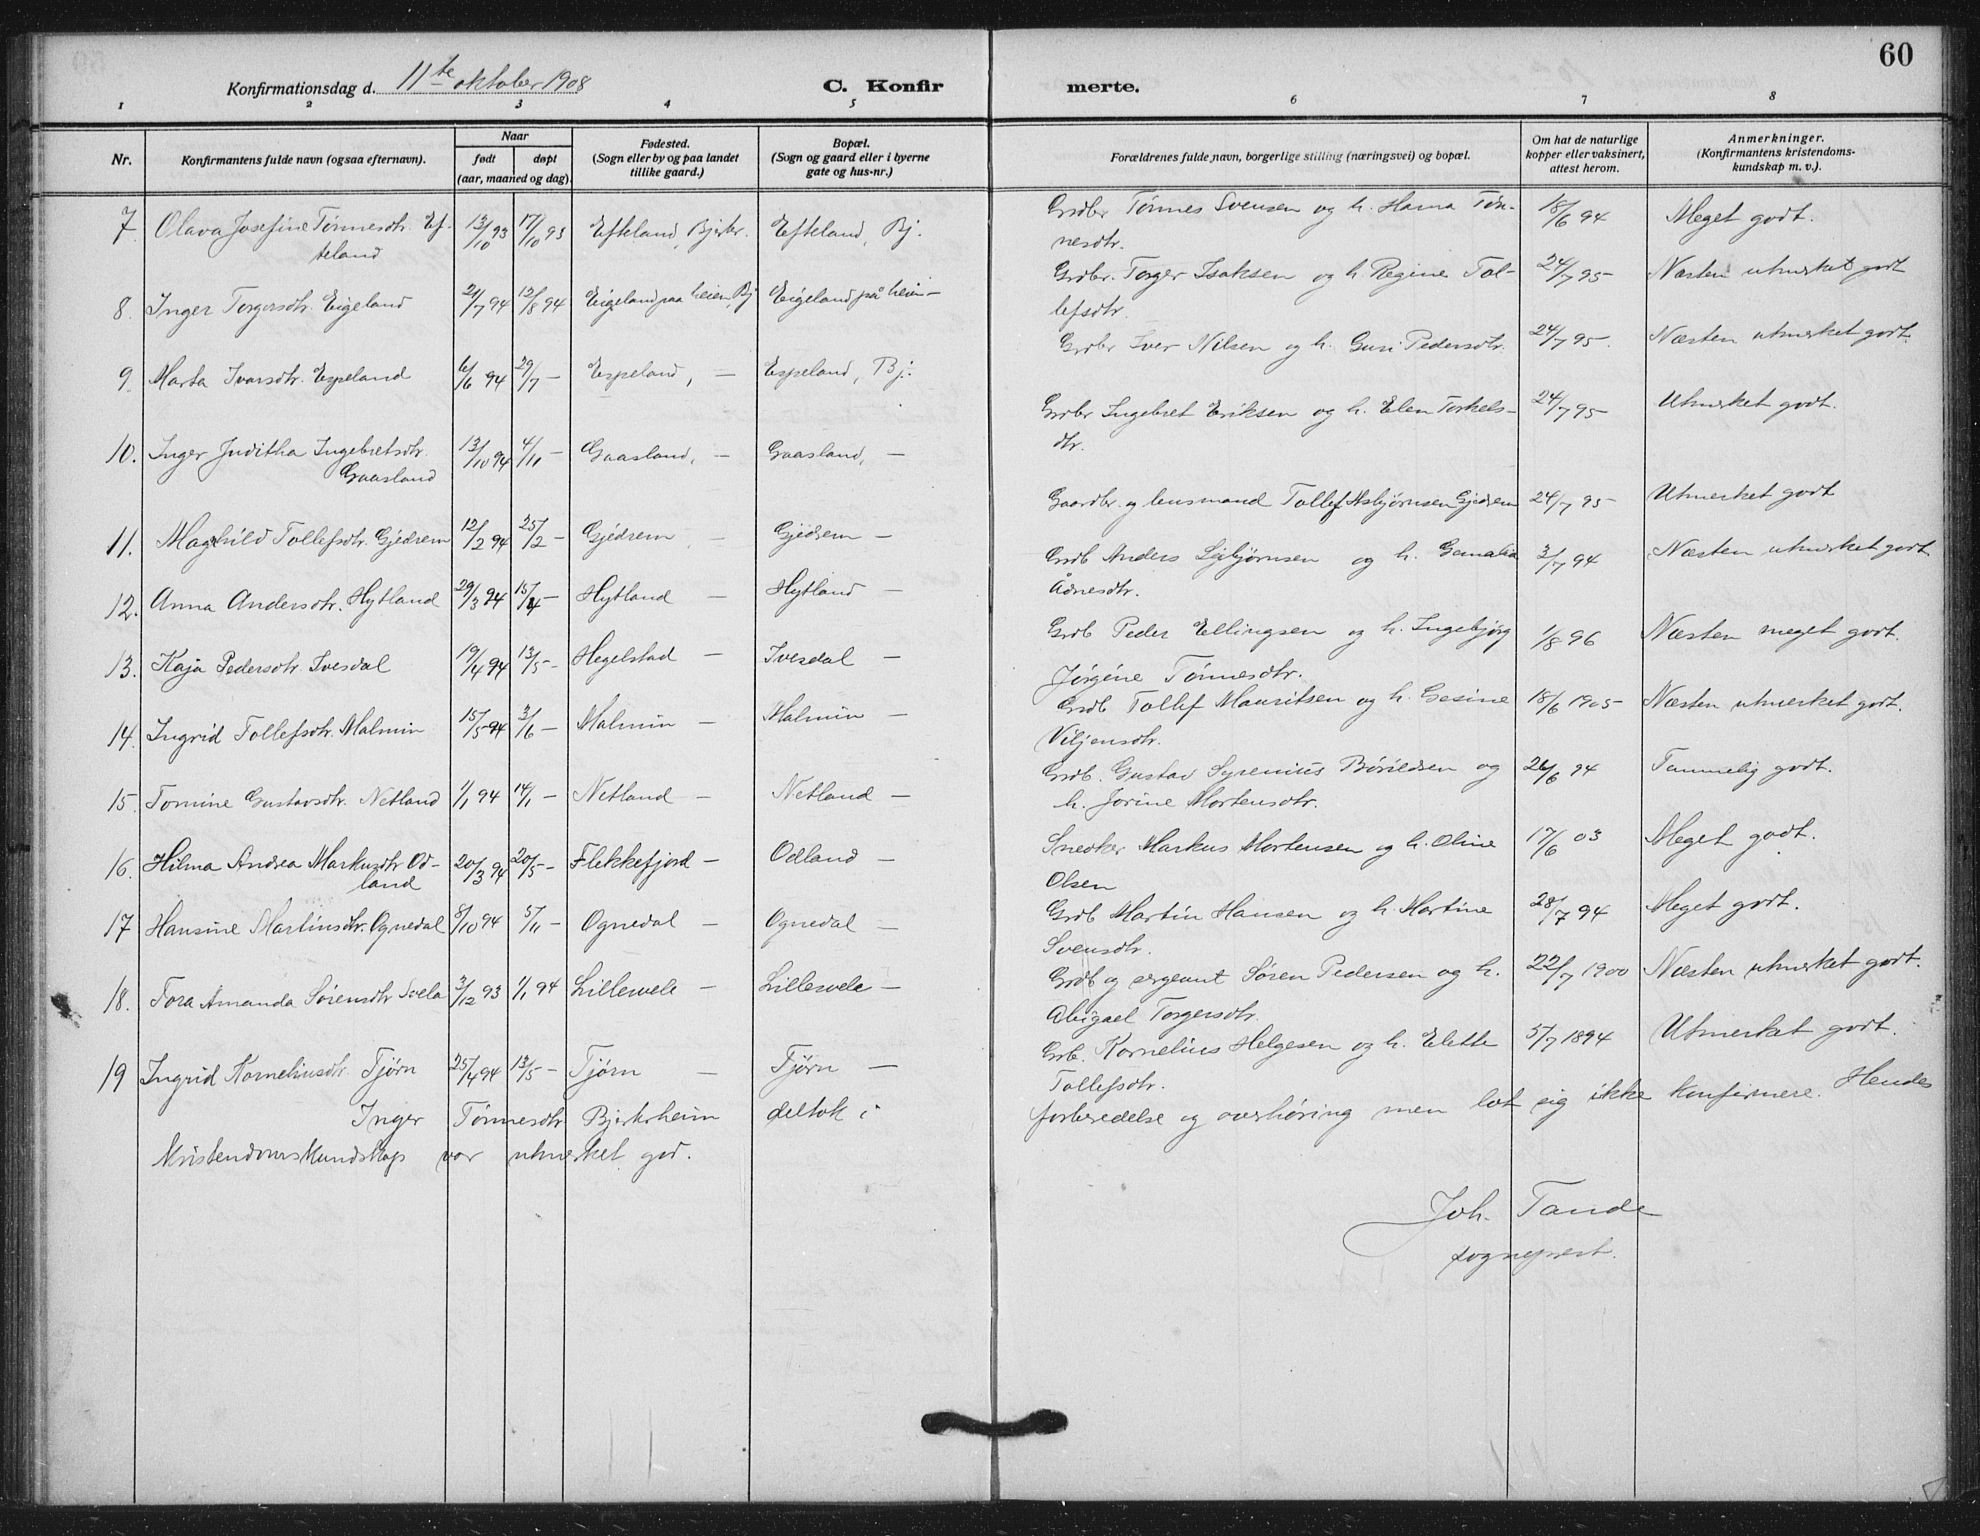 60
Konfirmationsdag d. 11te oktober 1908
C. Konfirmerte.
1 2 3 4 5 6 7 8
Nr.
Konfirmantens fulde navn (ogsaa efternavn).
Naar
født døpt
(aar, maaned og dag).
Fødested.
(Sogn eller by og paa landet
tillike gaard.)
Bopæl.
(Sogn og gaard eller i byerne
gate og hus-nr.)
Forældrenes fulde navn, borgerlige stilling (næringsvei) og bopæl.
Om hat de naturlige
kopper eller vaksinert,
attest herom.
Anmerkninger.
(Konfirmantens kristendoms-
kundskap m. v.).
7. Olava Josefine Tønnesdtr. Ef- 13/10 93 17/10 93 Efteland, Bjerkr. Efteland, Bj. Grdbr Tønnes Svensen og h. Hanna Tøn- 18/6 94 Meget godt.
teland nesdtr.
8. Inger Torgersdtr. Eigeland 21/7 94 12/8 94 Eigeland paa heien, Bj Eigeland på heien — Grdbr. Torger Isaksen og h. Regine Tol- 24/7 95 Næsten utmerket godt
lefsdtr.
9. Marta Ivarsdtr. Espeland 6/6 94 29/7 — Espeland, — Espeland, Bj. Grdbr Iver Nilsen og h. Guri Pedersdtr. 24/7 95. Næsten utmerket godt.
10. Inger Juditha Ingebretsdtr. 13/10 94 4/11 — Gaasland, — Gaasland, — Grdbr Ingebret Eriksen og h. Elen Torkels- 24/7 95 Utmerket godt.
Gaasland dtr.
11. Maghild Tollefsdtr. Gjedrem 12/2 94 25/2 — Gjedrem — Gjedrem — Gaardbr. og lensmand Tollef Asbjørnsen Gjedrem 24/7 95 Utmerket godt
12. Anna Andersdtr. Hytland 29/3 94 15/4 — Hytland — Hytland — Grdb Anders Leibjørnsen og h. Gemalia 3/7 94 Næsten utmerket godt
Ådnesdtr.
13. Kaja Pedersdtr. Ivesdal 19/4 94 13/5 — Hegelstad — Ivesdal — Grdb Peder Ellingsen og h. Ingebjørg 1/8 96 Næsten meget godt.
Jørgine Tønnesdtr.
14. Ingrid Tollefsdtr. Malmin 15/5 94 3/6 — Malmin — Malmin — Grdb Tollef Mauritsen og h. Gesine 18/6 1905 Næsten utmerket godt.
Viljensdtr.
15. Tomine Gustavsdtr. Netland 1/1 94 14/1 — Netland — Netland — Grdb. Gustav Syrenius Bårdsen og 26/6 94 Temmelig godt.
h. Jorine Mortensdtr.
16. Hilma Andrea Markusdtr Od- 20/3 94 20/5 — Flekkefjord — Odland — Snedker Markus Mortensen og h. Oline 17/6 03 Meget godt.
land Olsen
17 Hansine Martinsdtr. Ognedal 8/10 94 5/11 — Ognedal — Ognedal — Grdb Martin Hansen og h. Martine 28/7 94 Meget godt.
Svensdtr.
18. Tora Amanda Sørensdtr Svela 3/12 93 1/1 94 Lillesvele — Lillesvele — Grdb og sergeant Søren Pedersen og h. 22/7 1900 Næsten utmerket godt.
Abigael Torgersdtr.
19 Ingrid Kornelinsdtr. Tjørn 25/4 94 13/5 — Tjørn — Tjørn — Grb. Kornelius Helgesen og h. Elette 5/7 1894 Utmerket godt.
Tollefsdtr.
Inger Tønnesdtr Bjerkrheim deltok i forberedelse og overhøring men lot sig ikke konfirmere. Hendes
Kristendomskundskap var utmerket god.
Joh. Tande
sogneprest.